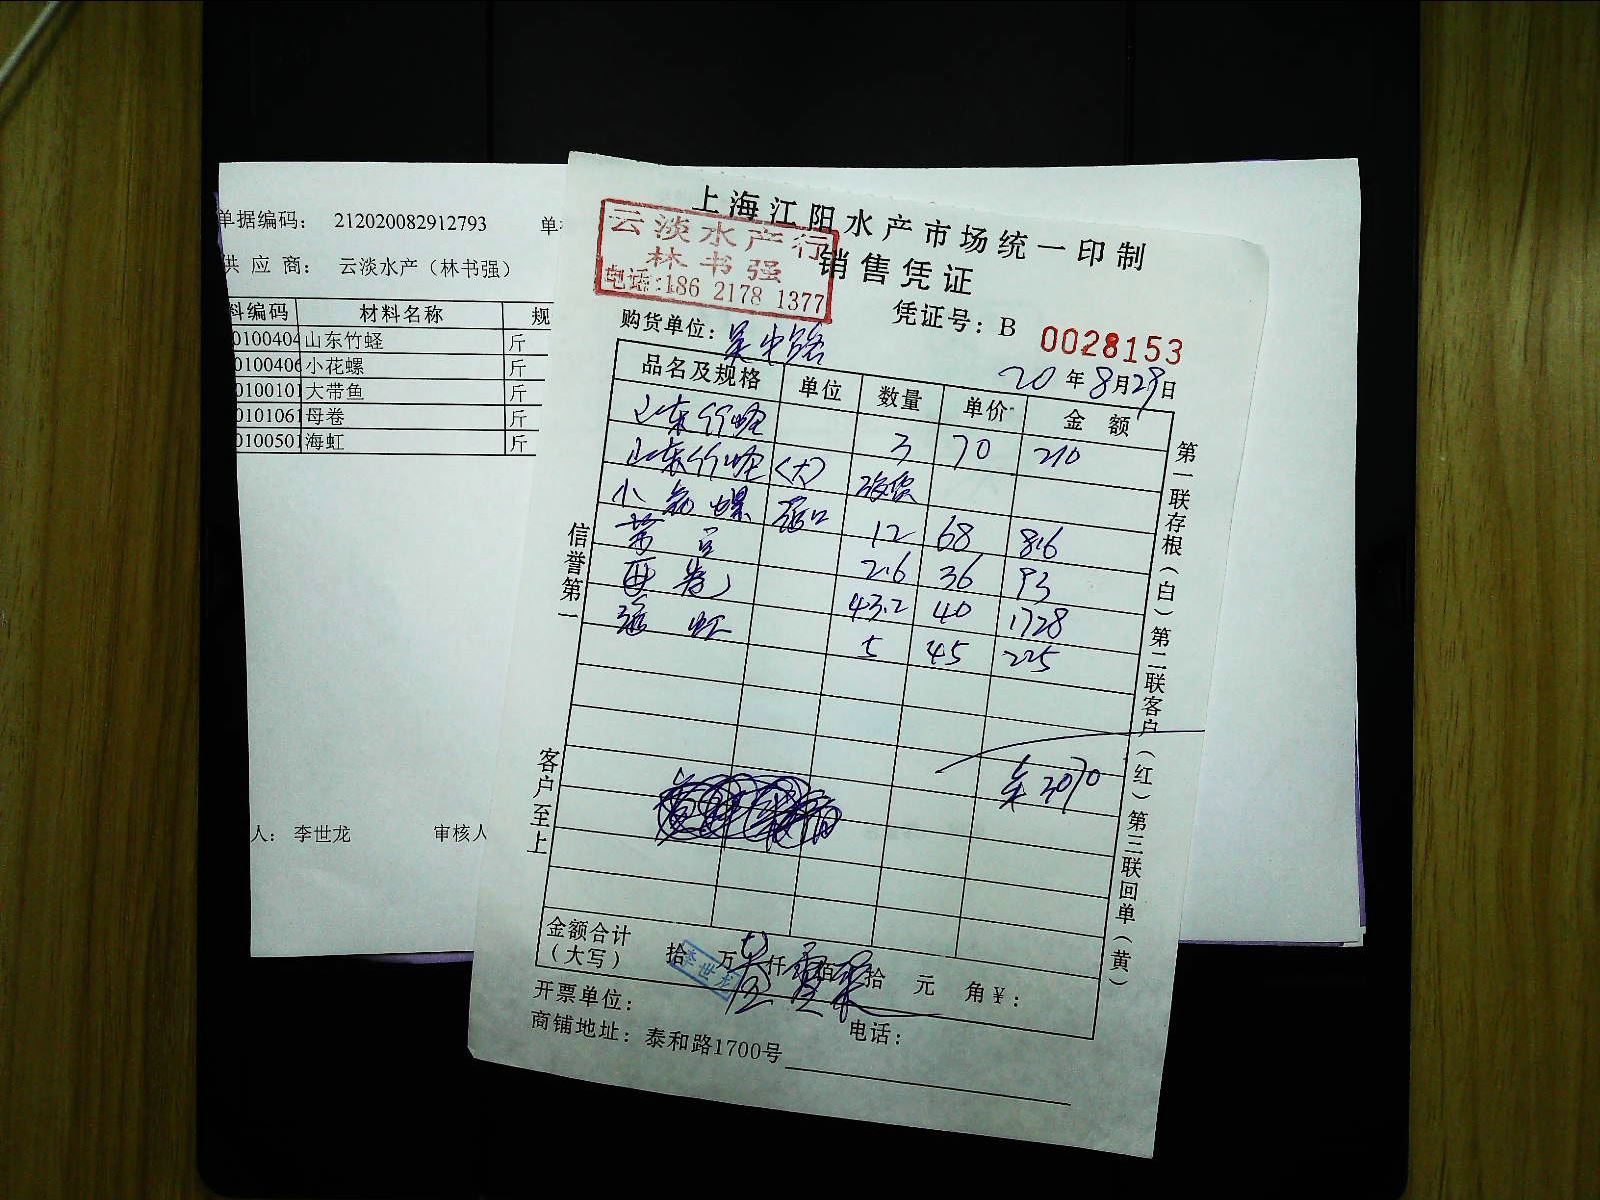 单据编码： 212020082912793 单
供 应 商： 云淡水产（林书强）
料编码 材料名称 规
0100404 山东竹蛏 斤
0100406 小花螺 斤
0100101 大带鱼 斤
0101061 母卷 斤
0100501 海虹 斤
人： 李世龙 审核人
上海江阳水产市场统一印制
销售凭证
云淡水产行
林书强
电话:186 2178 1377
凭证号：B 0028153
购货单位：吴中路
20 年 8 月 29 日
品名及规格 单位 数量 单价 金 额
山东竹蛏 3 70 210
山东竹蛏 (大)
小花螺 12 68 816
2.6 36 93
母卷 43.2 40 1728
海虹 5 45 225
3070
金额合计
（大写） 拾 万 叁 仟 零 佰 柒 拾 元 角 ￥：
李世龙
开票单位： 电话：
商铺地址：泰和路1700号
信誉第一
客户至上
第一联存根（白）第二联客户（红）第三联回单（黄）